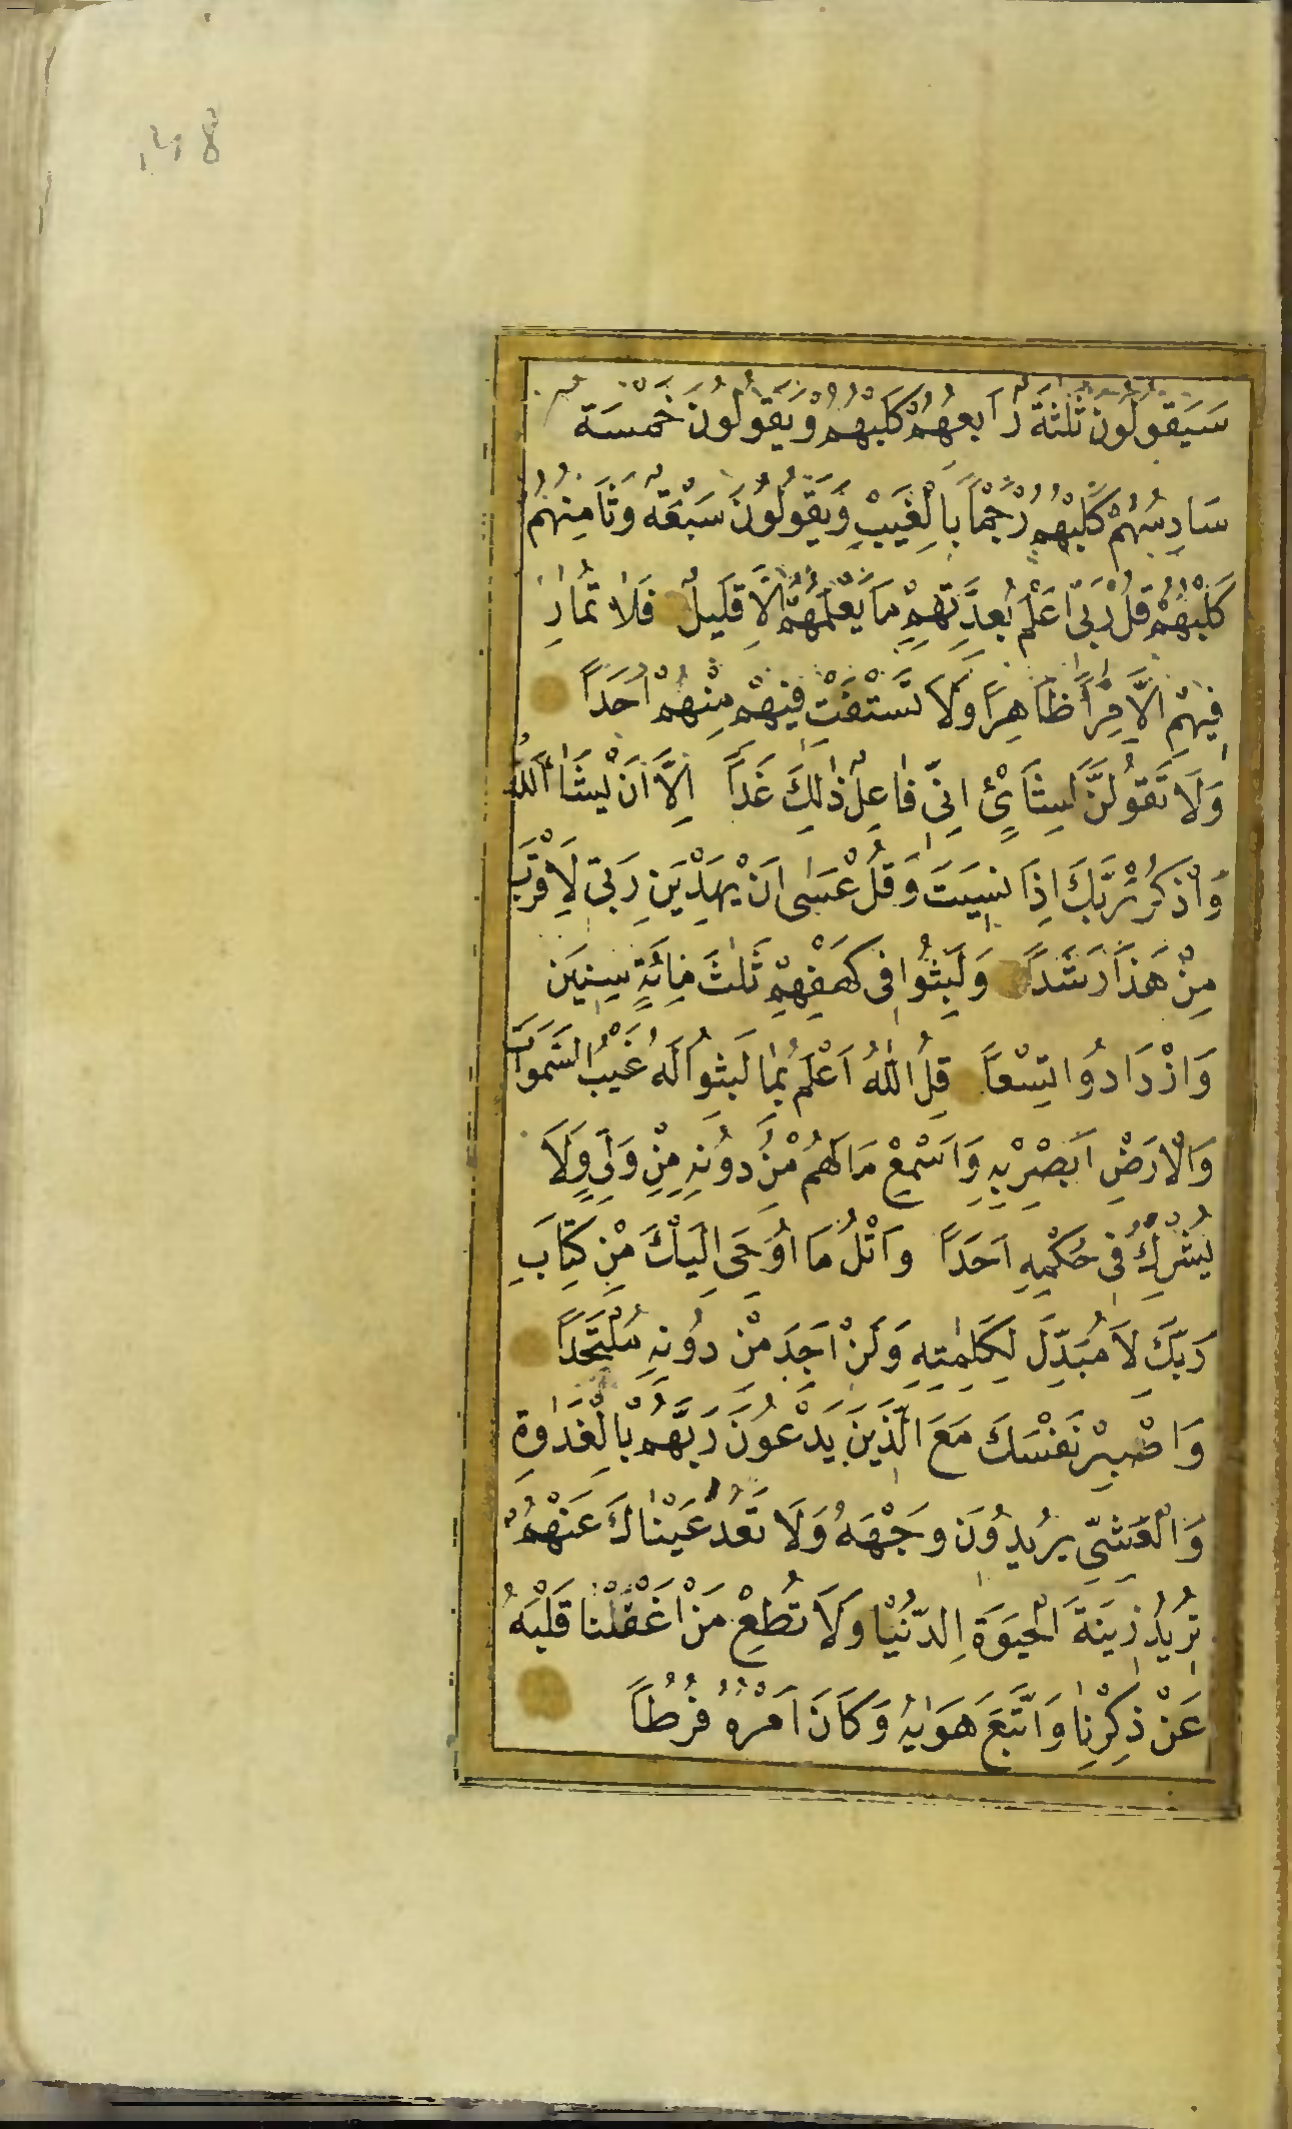 سَيَقُولُونَ ثَلٰثَةٌ رَابِعُهُمْ كَلْبُهُمْ وَيَقُولُونَ خَمْسَةٌ
سَادِسُهُمْ كَلْبُهُمْ رَجْمًا بِالْغَيْبِ وَيَقُولُونَ سَبْعَةٌ وَثَامِنُهُمْ
كَلْبُهُمْ قُلْ رَبّى اَعْلَمُ بِعِدَّتِهِمْ مَا يَعْلَمُهُمْ اِلَّا قَلِيلٌ فَلَا تُمَارِ
فِيهِمْ اِلَّا مِرَاً ظَاهِرًا وَلَا تَسْتَفْتِ فِيهِمْ مِنْهُمْ اَحَدًا
وَلَا تَقُولَنَّ لِشَائٍْ اِنّى فَاعِلٌ ذٰلِكَ غَدًا اِلَّا اَنْ يَشَاءَ اللّٰهُ
وَاذْكُرْ رَبَّكَ اِذَا نَسِيتَ وَقُلْ عَسٰى اَنْ يَهْدِيَنِ رَبّى لِاَقْرَبَ
مِنْ هَذَا رَشَدًا وَلَبِثُوا فى كَهْفِهِمْ ثَلٰثَ مِائَةٍ سِنِينَ
وَازْدَادُوا تِسْعًا قُلِ اللّٰهُ اَعْلَمُ بِمَا لَبِثُوا لَهُ غَيْبُ السَّمٰوَاتِ
وَالْاَرْضِ اَبْصِرْ بِهِ وَاَسْمِعْ مَا لَهُمْ مِنْ دُونِهِ مِنْ وَلِىٍّ وَلَا
يُشْرِكُ فى حُكْمِهِ اَحَدًا وَاتْلُ مَا اُوحِىَ اِلَيْكَ مِنْ كِتَابِ
رَبِّكَ لَا مُبَدِّلَ لِكَلِمٰتِهِ وَلَنْ اَجِدَ مِنْ دُونِهِ مُلْتَحَدًا
وَاصْبِرْ نَفْسَكَ مَعَ الَّذِينَ يَدْعُونَ رَبَّهُمْ بِالْغَدٰوةِ
وَالْعَشِىِّ يُرِيدُونَ وَجْهَهُ وَلَا تَعْدُ عَيْنَاكَ عَنْهُمْ
تُرِيدُ زِينَةَ الْحَيٰوةِ الدُّنْيَا وَلَا تُطِعْ مَنْ اَغْفَلْنَا قَلْبَهُ
عَنْ ذِكْرِنَا وَاتَّبَعَ هَوٰيهُ وَكَانَ اَمْرُهُ فُرُطًا